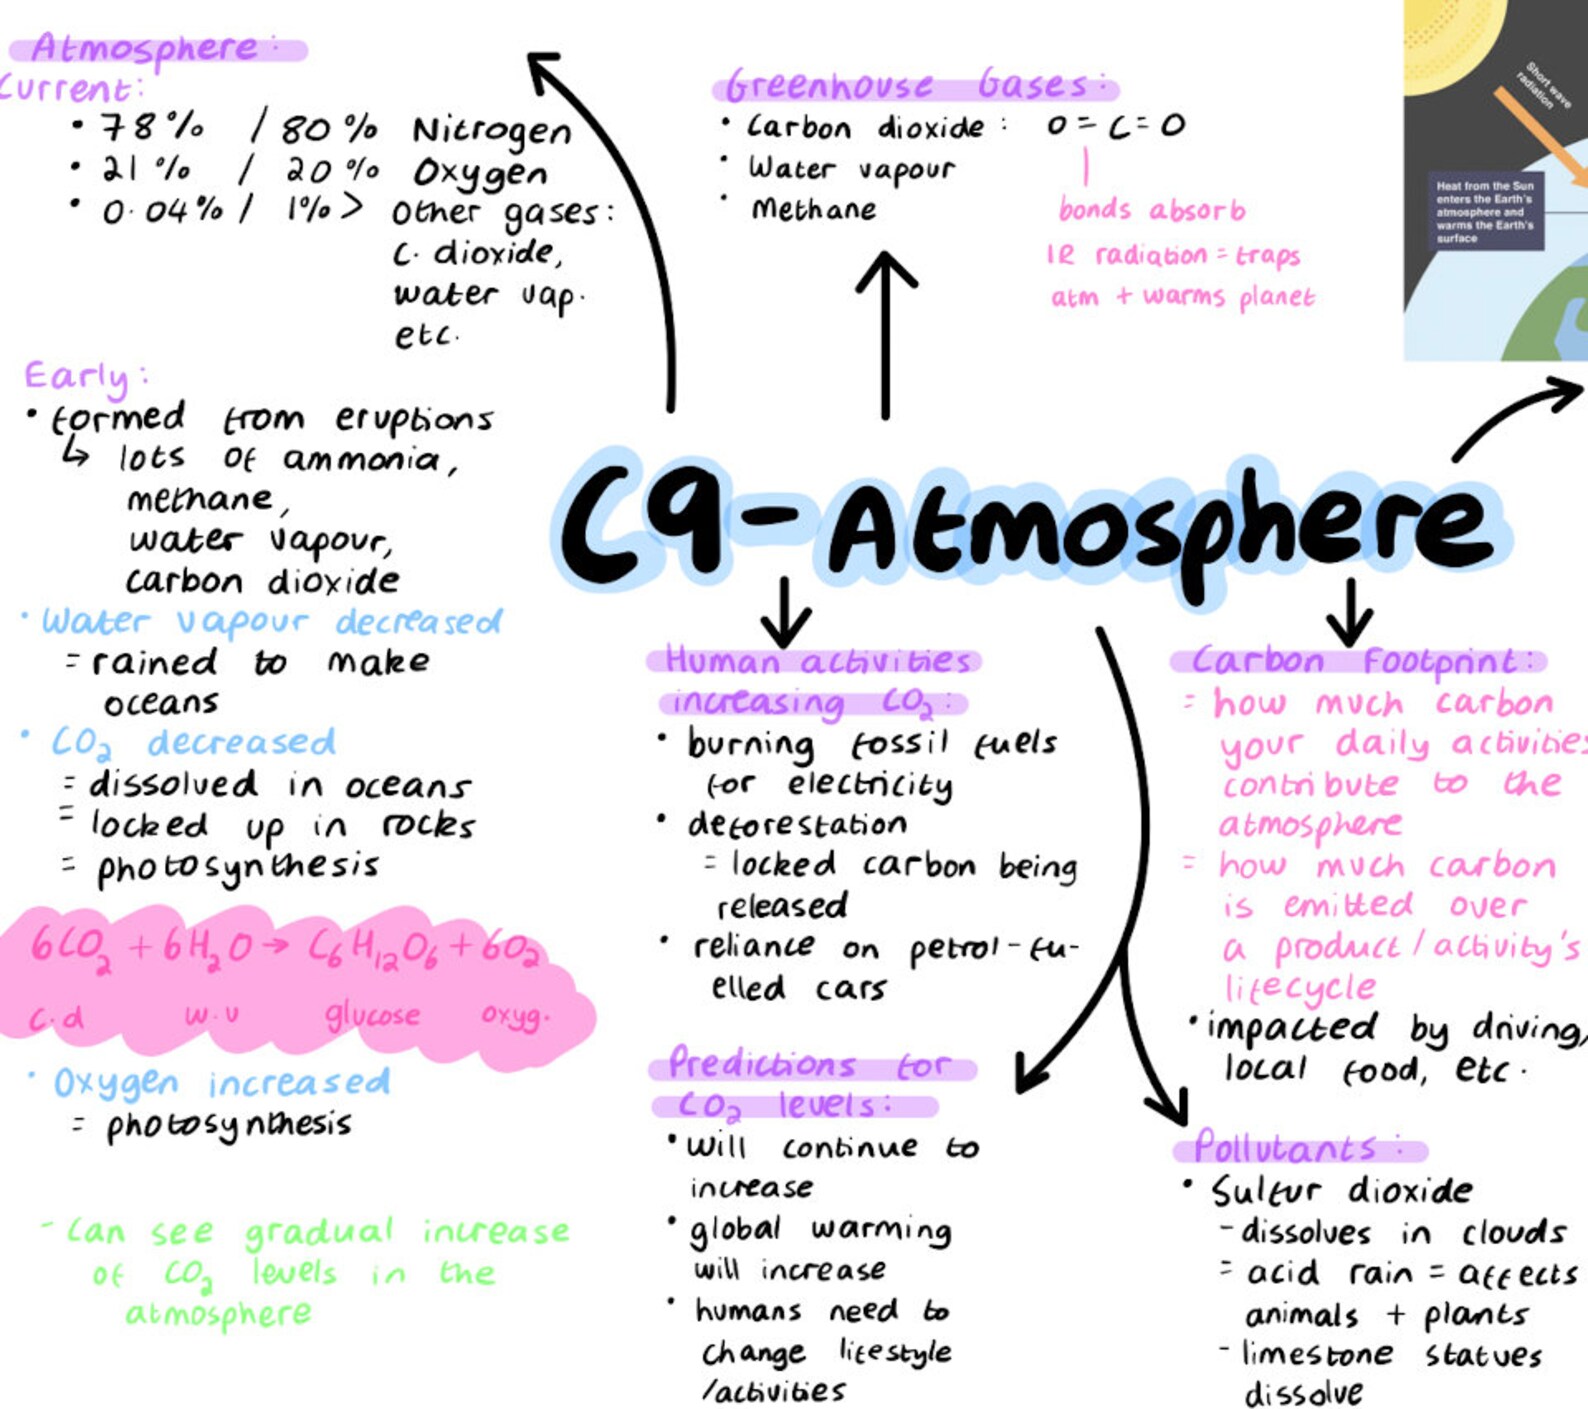 Atmosphere:
Current:
• 78% / 80% Nitrogen
• 21% / 20% Oxygen
• 0.04% / 1% > Other gases:
C. dioxide,
water vap.
etc.
Early:
• formed from eruptions
↳ lots of ammonia,
methane,
water vapour,
carbon dioxide
• Water vapour decreased
= rained to make
oceans
• CO₂ decreased
= dissolved in oceans
= locked up in rocks
= photosynthesis
6CO₂ + 6H₂O → C₆H₁₂O₆ + 6O₂
c.d w.v glucose oxyg.
• Oxygen increased
= photosynthesis
- Can see gradual increase
of CO₂ levels in the
atmosphere
Greenhouse Gases:
• Carbon dioxide: O=C=O
• Water vapour
• Methane
bonds absorb
IR radiation = traps
atm + warms planet
Short wave
radiation
Heat from the Sun
enters the Earth's
atmosphere and
warms the Earth's
surface
C9-Atmosphere
Human activities
increasing CO₂:
• burning fossil fuels
for electricity
• deforestation
= locked carbon being
released
• reliance on petrol-fu-
elled cars
Predictions for
CO₂ levels:
• will continue to
increase
• global warming
will increase
• humans need to
change lifestyle
/activities
Carbon Footprint:
= how much carbon
your daily activities
contribute to the
atmosphere
= how much carbon
is emitted over
a product/activity's
lifecycle
• impacted by driving,
local food, etc.
Pollutants:
• Sulfur dioxide
- dissolves in clouds
= acid rain = affects
animals + plants
- limestone statues
dissolve